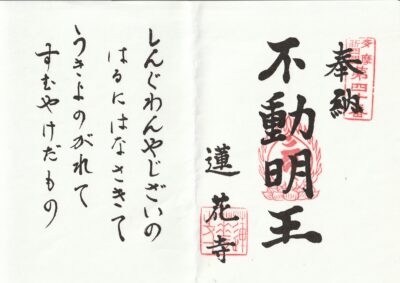 多摩
奉納
不動明王
蓮花寺
しんぐわんやじざいの
はるにはなさきて
うきよのがれて
すむやけだもの